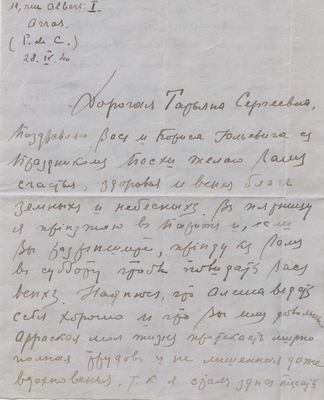 11, rue Albert I.
Arras.
(P. de C.)
28. IV. 40
Дорогая Татьяна Сергеевна,
Поздравляю Вас и Бориса Юльевича с
праздником Пасхи желаю Вам
счастья, здоровья и всех благ
земных и небесных. В пятницу
я приезжаю в Париж и, если
Вы разрешите, приеду к Вам
в субботу чтобы повидать Вас
всех. Надеюсь, что Алеша ведет
себя хорошо и что Вы им довольны.
Арраская моя жизнь протекает мирно
полная трудов и не лишенная даже
вдохновенья, т. к. я стал здесь писать